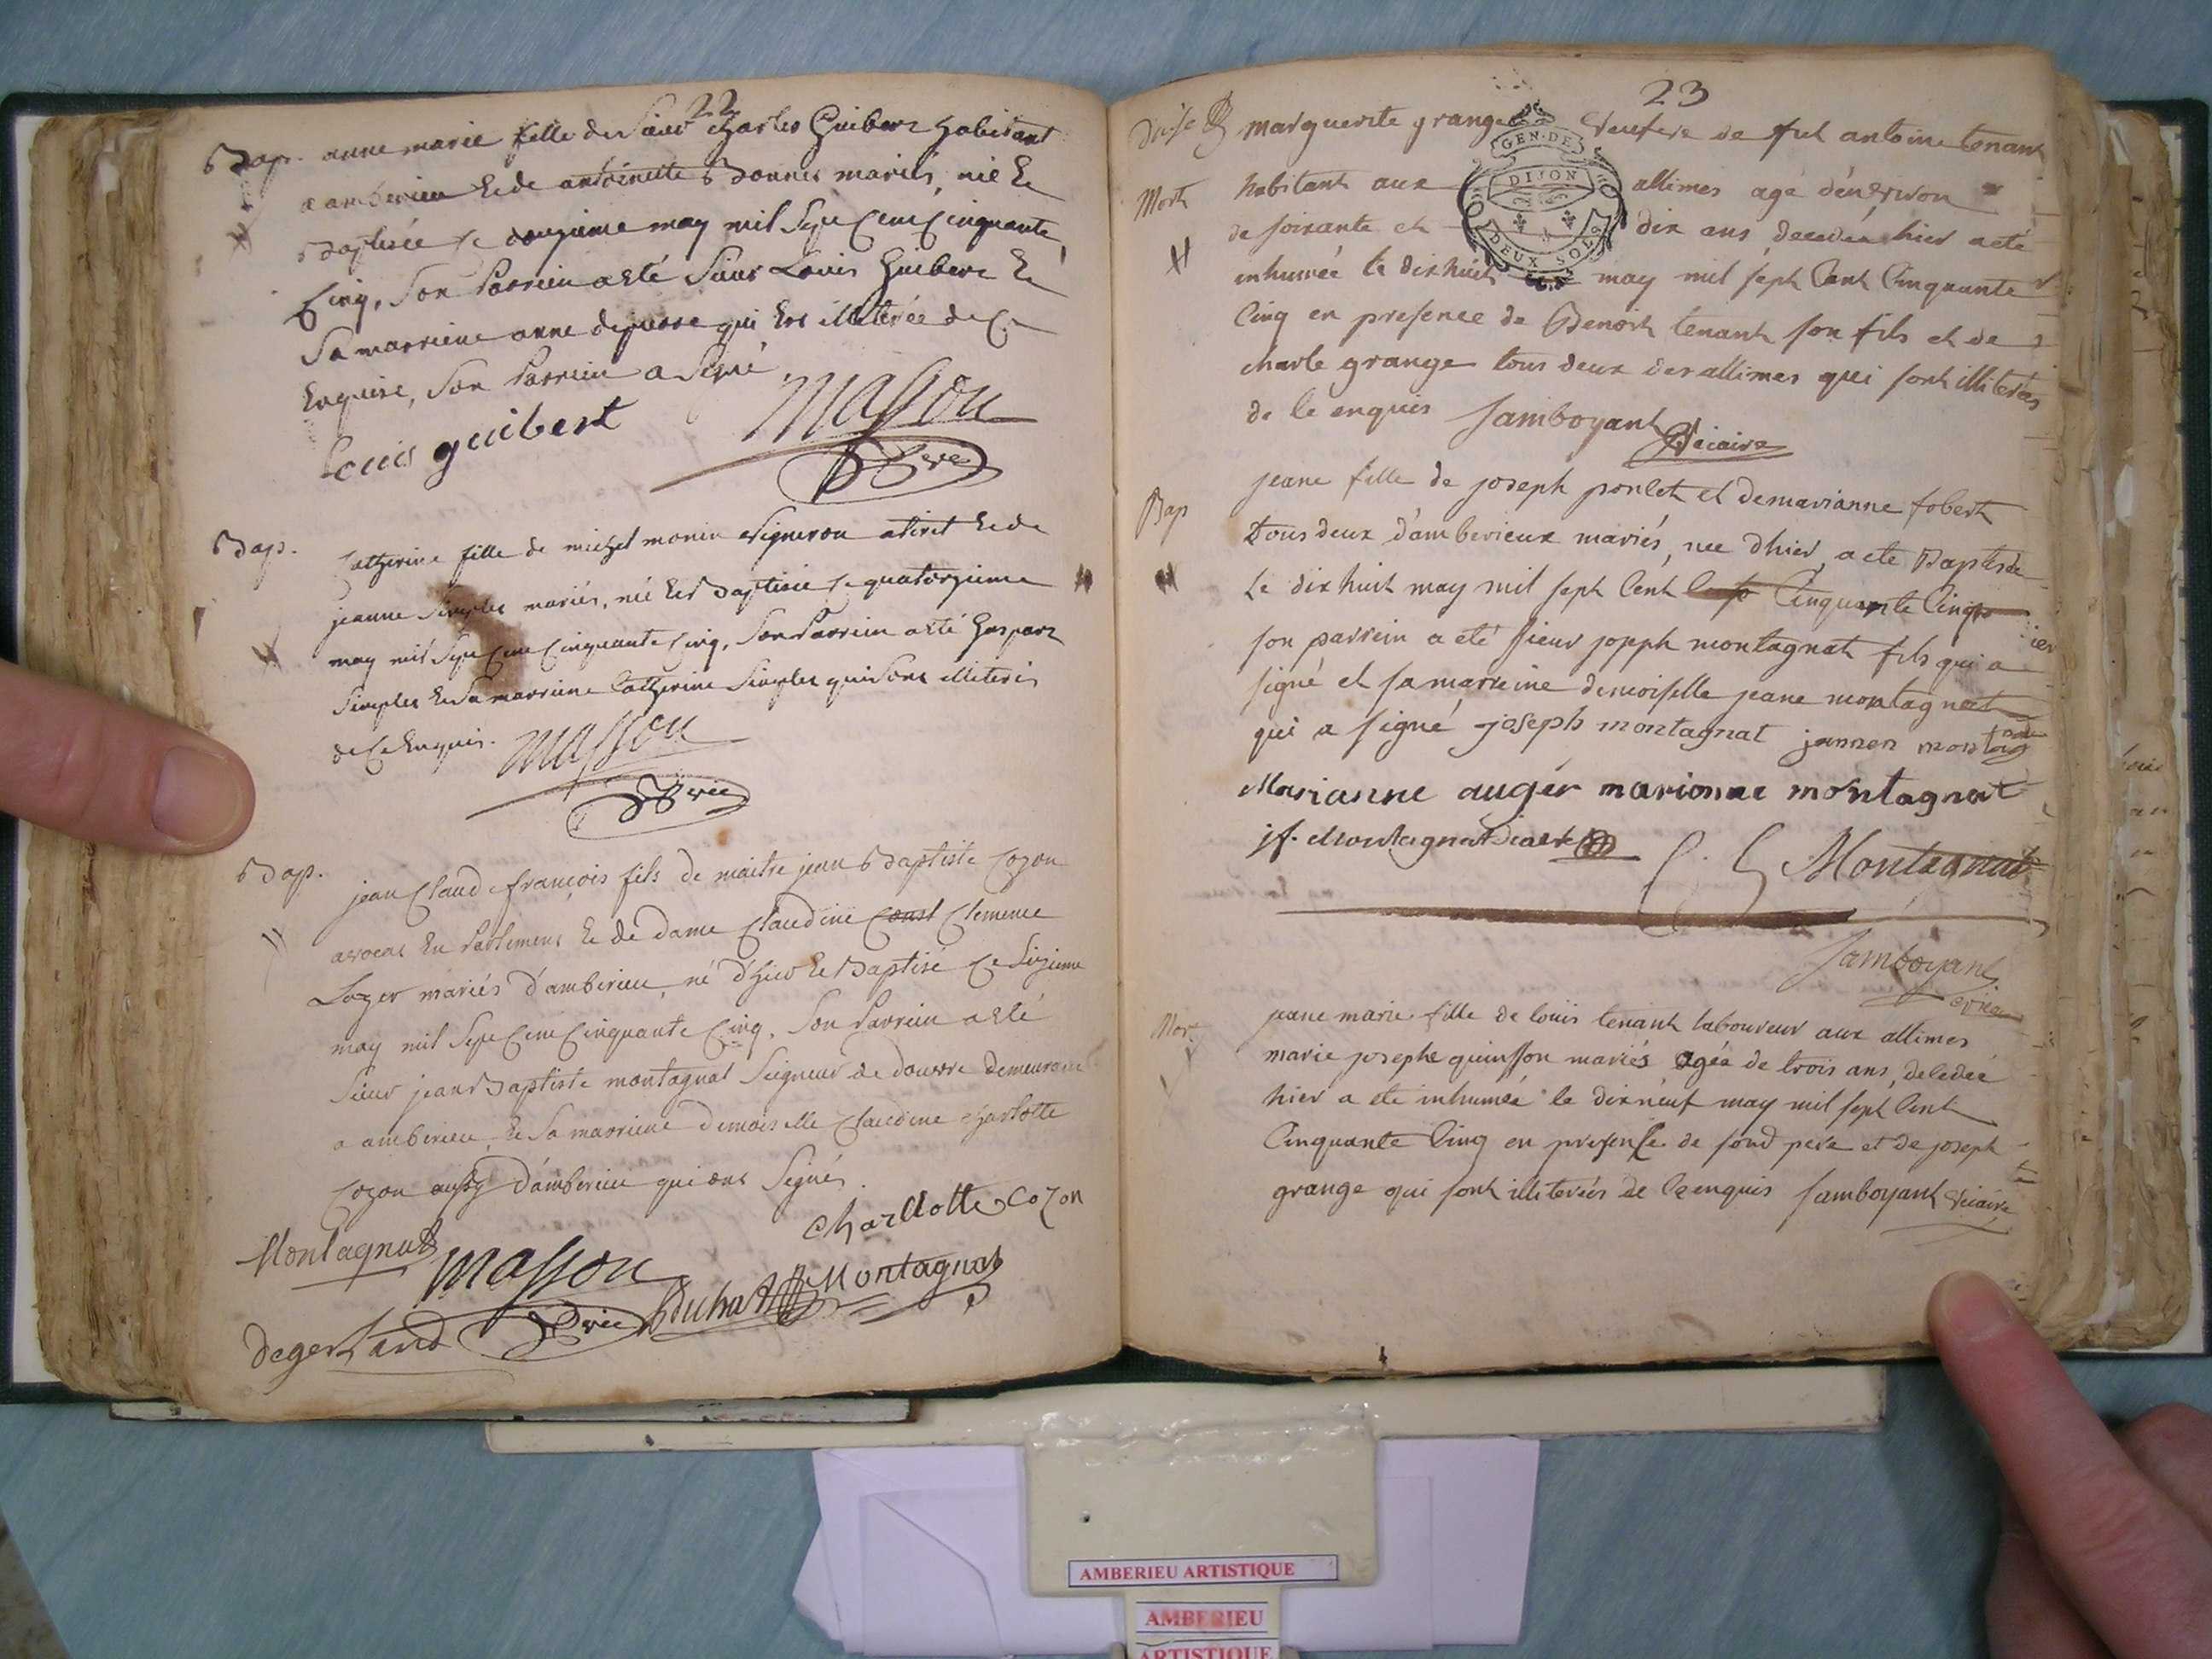 22
Bap. anne marie fille de Sieur Charles Guibert habitant
a amberieu et de antoinette Bonnet mariés, née et
Baptisée le douzieme may mil Sept Cent Cinquante
Cinq, Son Parrein a esté Sieur Louis Guibert et
Sa marreine anne qui est illiterée de Ce
Enquise, Son Parrein a Signé
Louis guibert Masson
Vic
Bap. Catherine fille de michel monin vigneron a tiret et de
jeanne Simples mariés, née et Baptisée le quatorzieme
may mil Sept Cent Cinquante Cinq, Son Parrein a esté Gaspard
Simples et Sa marreine Catherine Simples qui sont illiterés
de Ce Enquis. Masson
Vic
Bap. jean Claude françois fils de maitre jean Baptiste Cozon
avocat En Parlement et de dame Claudine Const Clemence
Lozer mariés d'amberieu, né d'hier et Baptisé Ce Sizieme
may mil Sept Cent Cinquante Cinq. Son Parrein a esté
Sieur jean Baptiste montagnat Seigneur de douvre demeurant
a amberieu, et Sa marreine demoiselle Claudine Charlotte
Cozon aussy d'amberieu qui ont Signés.
Charllotte Cozon
Montagnat Masson Montagnat
degerland Vic
23
marguerite grange veufve de fut antoine tenant
GEN·DE DIJON DEUX SOLS
Mort habitant aux allimes agé d'environ
de soixante et dix ans decedée hier a eté
inhumée le dix huit may mil sept Cent Cinquante
Cinq en presence de Benoit tenant son fils et de
charle grange tous deux des allimes qui sont illiterés
de le enquis Jamboyant Vicaire
Bap jeane fille de joseph ponlet et de marianne fobert
Tous deux d'amberieux mariés, nee d'hier, a ete Baptisée
Le dix huit may mil sept Cent Cinquante Cinq
son parrein a eté sieur joseph montagnat fils qui a
signé et sa marreine demoiselle jeane montagnat
qui a signé joseph montagnat jannen montag
Marianne auger marionne montagnat
jf. Montagnat
C. G Montagnat
Jamboyant
vic
Mort jeane marie fille de louis tenant laboureur aux allimes
marie josephe quinsson mariés agée de trois ans, deledée
hier a ete inhumée le dix neuf may mil sept Cent
Cinquante Cinq en presence de sond pere et de joseph
grange qui sont illiterés de Ce enquis Jamboyant Vicaire
AMBERIEU ARTISTIQUE
AMBERIEU
ARTISTIQUE